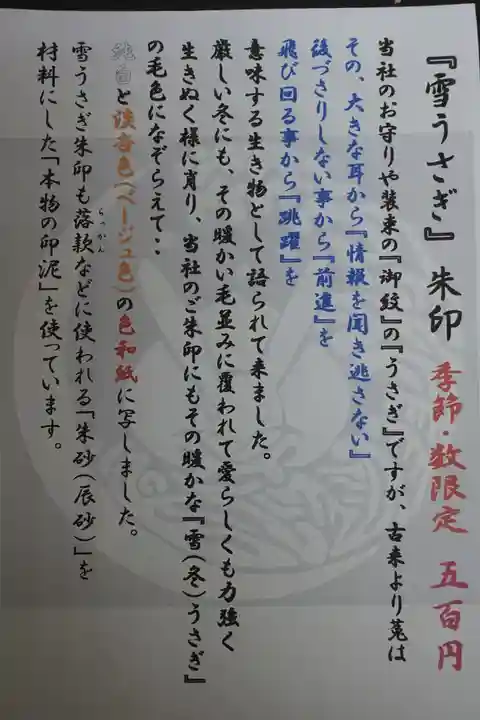 『雪うさぎ』朱印 季節・数限定 五百円
当社のお守りや装束の『御紋』の『うさぎ』ですが、古来より莵は
その、大きな耳から『情報を聞き逃さない』
後づさりしない事から『前進』を
飛び回る事から『跳躍』を
意味する生き物として語られて来ました。
厳しい冬にも、その暖かい毛並みに覆われて愛らしくも力強く
生きぬく様に肖り、当社のご朱印にもその暖かな『雪(冬)うさぎ』
の毛色になぞらえて・・
純白と淡香色(ベージュ色)の色和紙に写しました。
雪うさぎ朱印も落款などに使われる「朱砂(辰砂)」を
らっかん
材料にした「本物の印泥」を使っています。